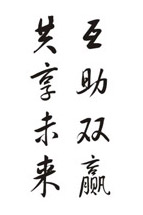 互助双赢
共享未来